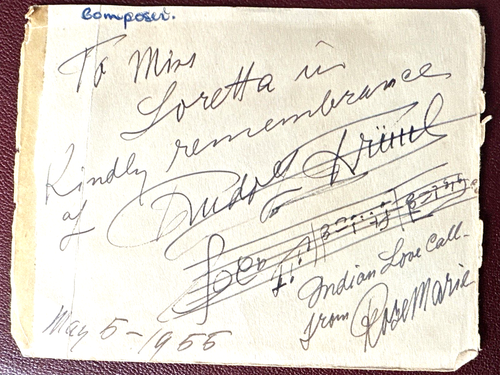 Composer.
To Miss
Loretta in
Kindly remembrance
of Rudolf Friml
Indian Love Call -
from Rose Marie
May 5 - 1955